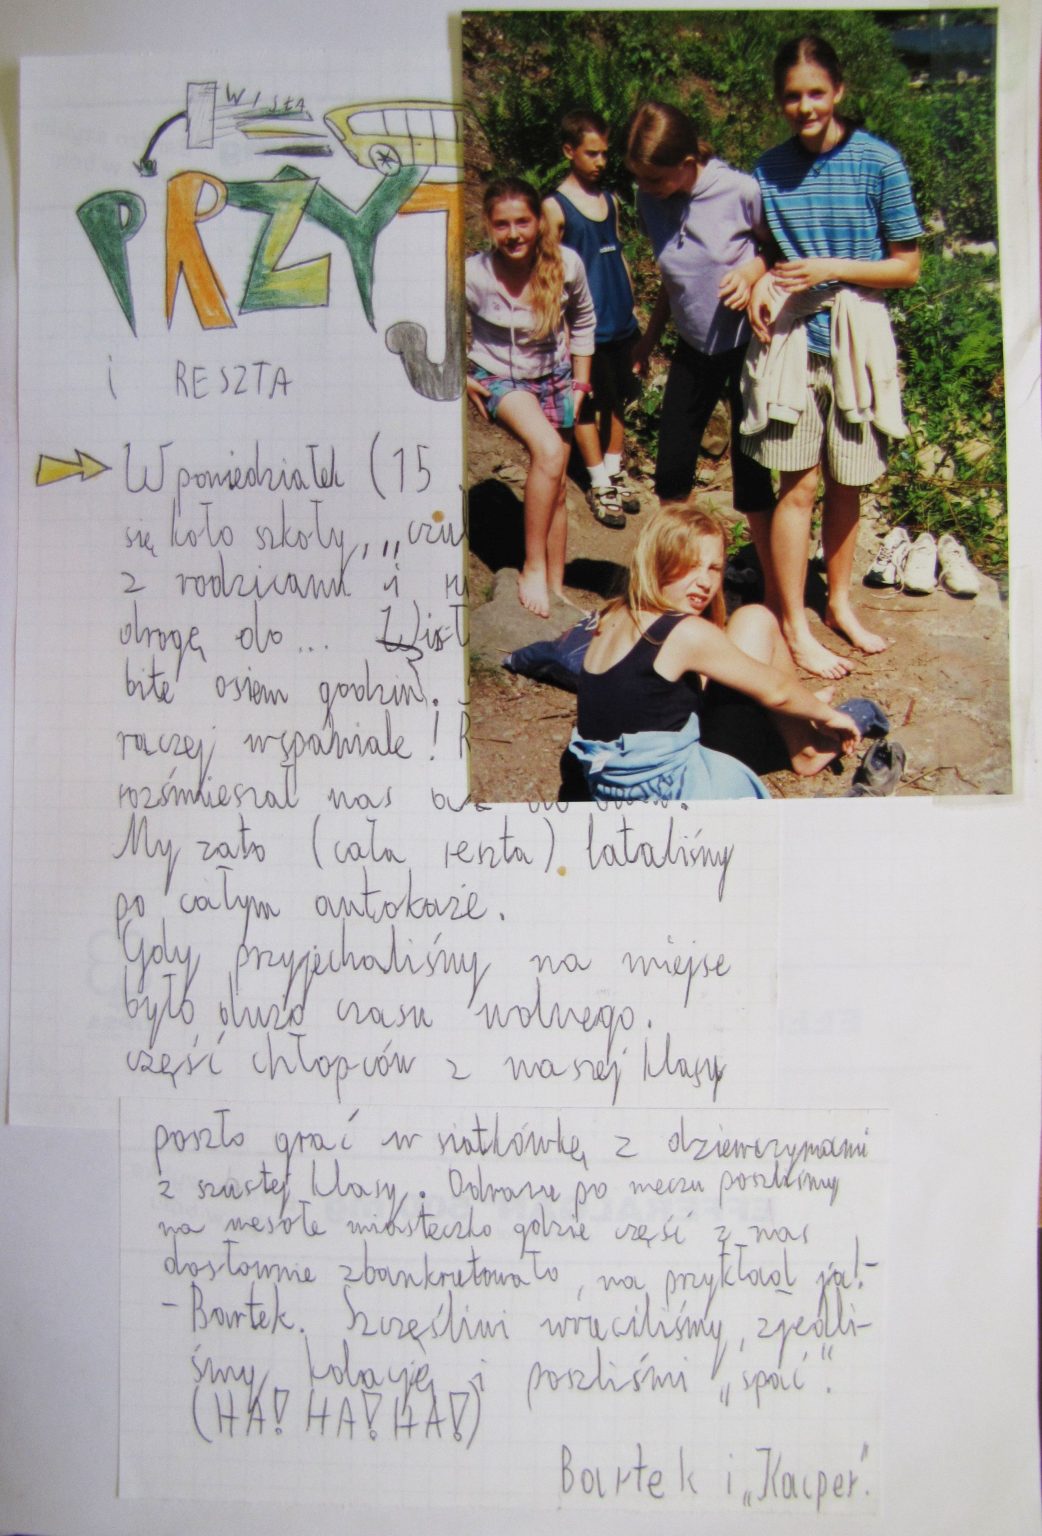 WISŁA
PRZYJ
i RESZTA
W poniedziałek (15
się koło szkoły, „czul
z rodzicami i
drogę do... Wisł
bite osiem godzin.
raczej wspaniale! R
rozśmieszał nas
My zato (cała reszta) lataliśmy
po całym autokaże.
Gdy przyjechaliśmy na miejse
było dużo czasu wolnego.
część chłopców z naszej klasy
poszło grać w siatkówkę z dziewczynami
z szustej klasy. Odrazu po meczu poszliśmy
na wesołe miasteczko gdzie część z nas
dosłownie zbankrutowało, na przykład ja!-
- Bartek. Szczęśliwi wróciliśmy, zjedli-
śmy kolację i poszliśmi „spać".
(HA! HA! HA!)
Bartek i „Kacper".